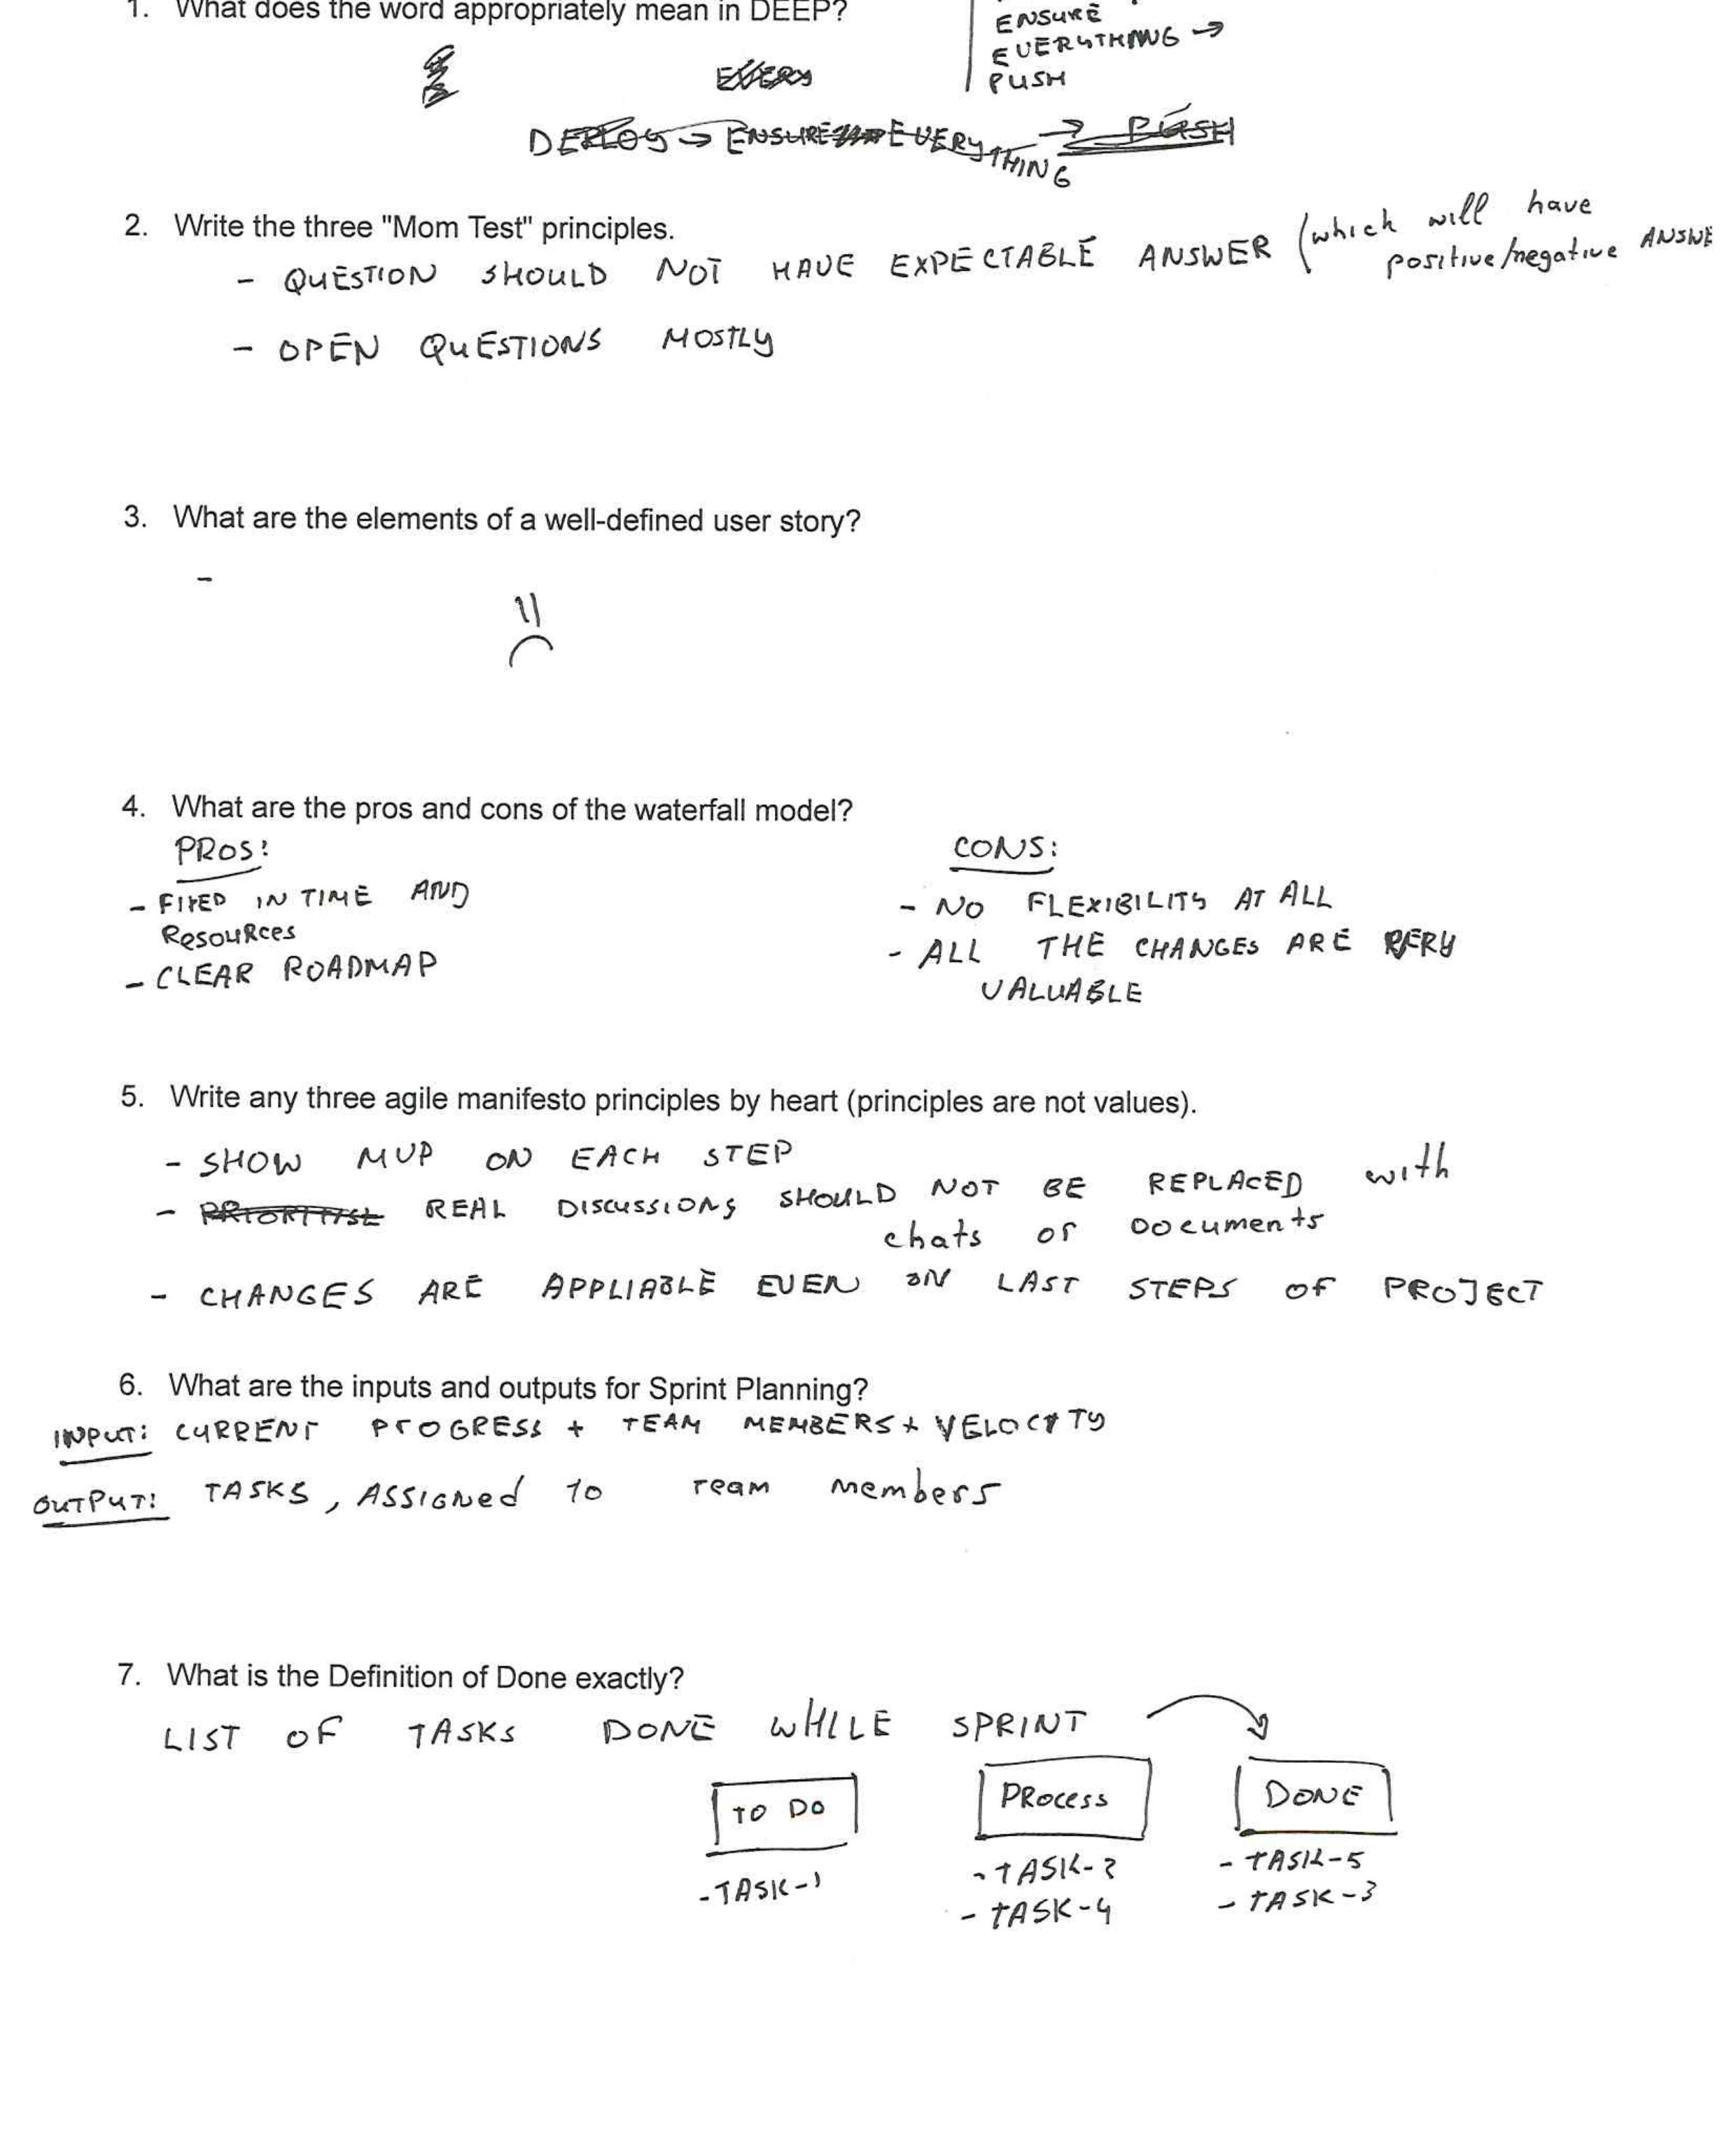 1. What does the word appropriately mean in DEEP?
ENSURE
EVERYTHING →
PUSH
DEPLOY → ENSURE EVERYTHING → PUSH
2. Write the three "Mom Test" principles.
- QUESTION SHOULD NOT HAVE EXPECTABLE ANSWER (which will have
positive/negative ANSWE
- OPEN QUESTIONS MOSTLY
3. What are the elements of a well-defined user story?
-
4. What are the pros and cons of the waterfall model?
PROS:
- FIXED IN TIME AND
Resources
- CLEAR ROADMAP
CONS:
- NO FLEXIBILITY AT ALL
- ALL THE CHANGES ARE VERY
VALUABLE
5. Write any three agile manifesto principles by heart (principles are not values).
- SHOW MVP ON EACH STEP
- PRIORITISE REAL DISCUSSIONS SHOULD NOT BE REPLACED with
chats or Documents
- CHANGES ARE APPLIABLE EVEN ON LAST STEPS OF PROJECT
6. What are the inputs and outputs for Sprint Planning?
INPUT: CURRENT PROGRESS + TEAM MEMBERS + VELOCITY
OUTPUT: TASKS, ASSIGNed to Team members
7. What is the Definition of Done exactly?
LIST OF TASKS DONE WHILE SPRINT
TO DO
- TASK-1
PRocess
- TASK-2
- TASK-4
DONE
- TASK-5
- TASK-3